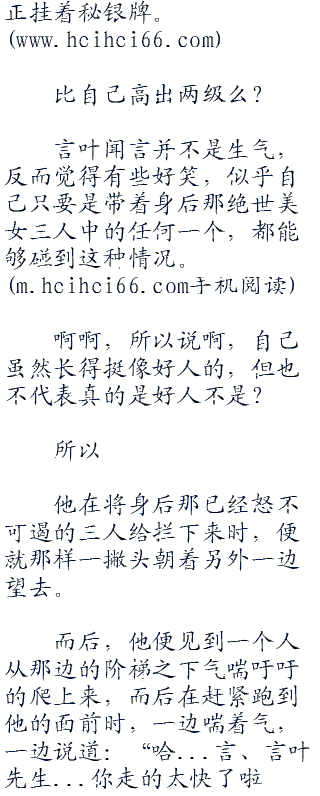 正挂着秘银牌。
(www.hcihci66.com)
比自己高出两级么？
言叶闻言并不是生气，
反而觉得有些好笑，似乎自
己只要是带着身后那绝世美
女三人中的任何一个，都能
够碰到这种情况。
(m.hcihci66.com手机阅读)
啊啊，所以说啊，自己
虽然长得挺像好人的，但也
不代表真的是好人不是？
所以
他在将身后那已经怒不
可遏的三人给拦下来时，便
就那样一撇头朝着另外一边
望去。
而后，他便见到一个人
从那边的阶梯之下气喘吁吁
的爬上来，而后在赶紧跑到
他的面前时，一边喘着气，
一边说道：“哈...言、言叶
先生...你走的太快了啦